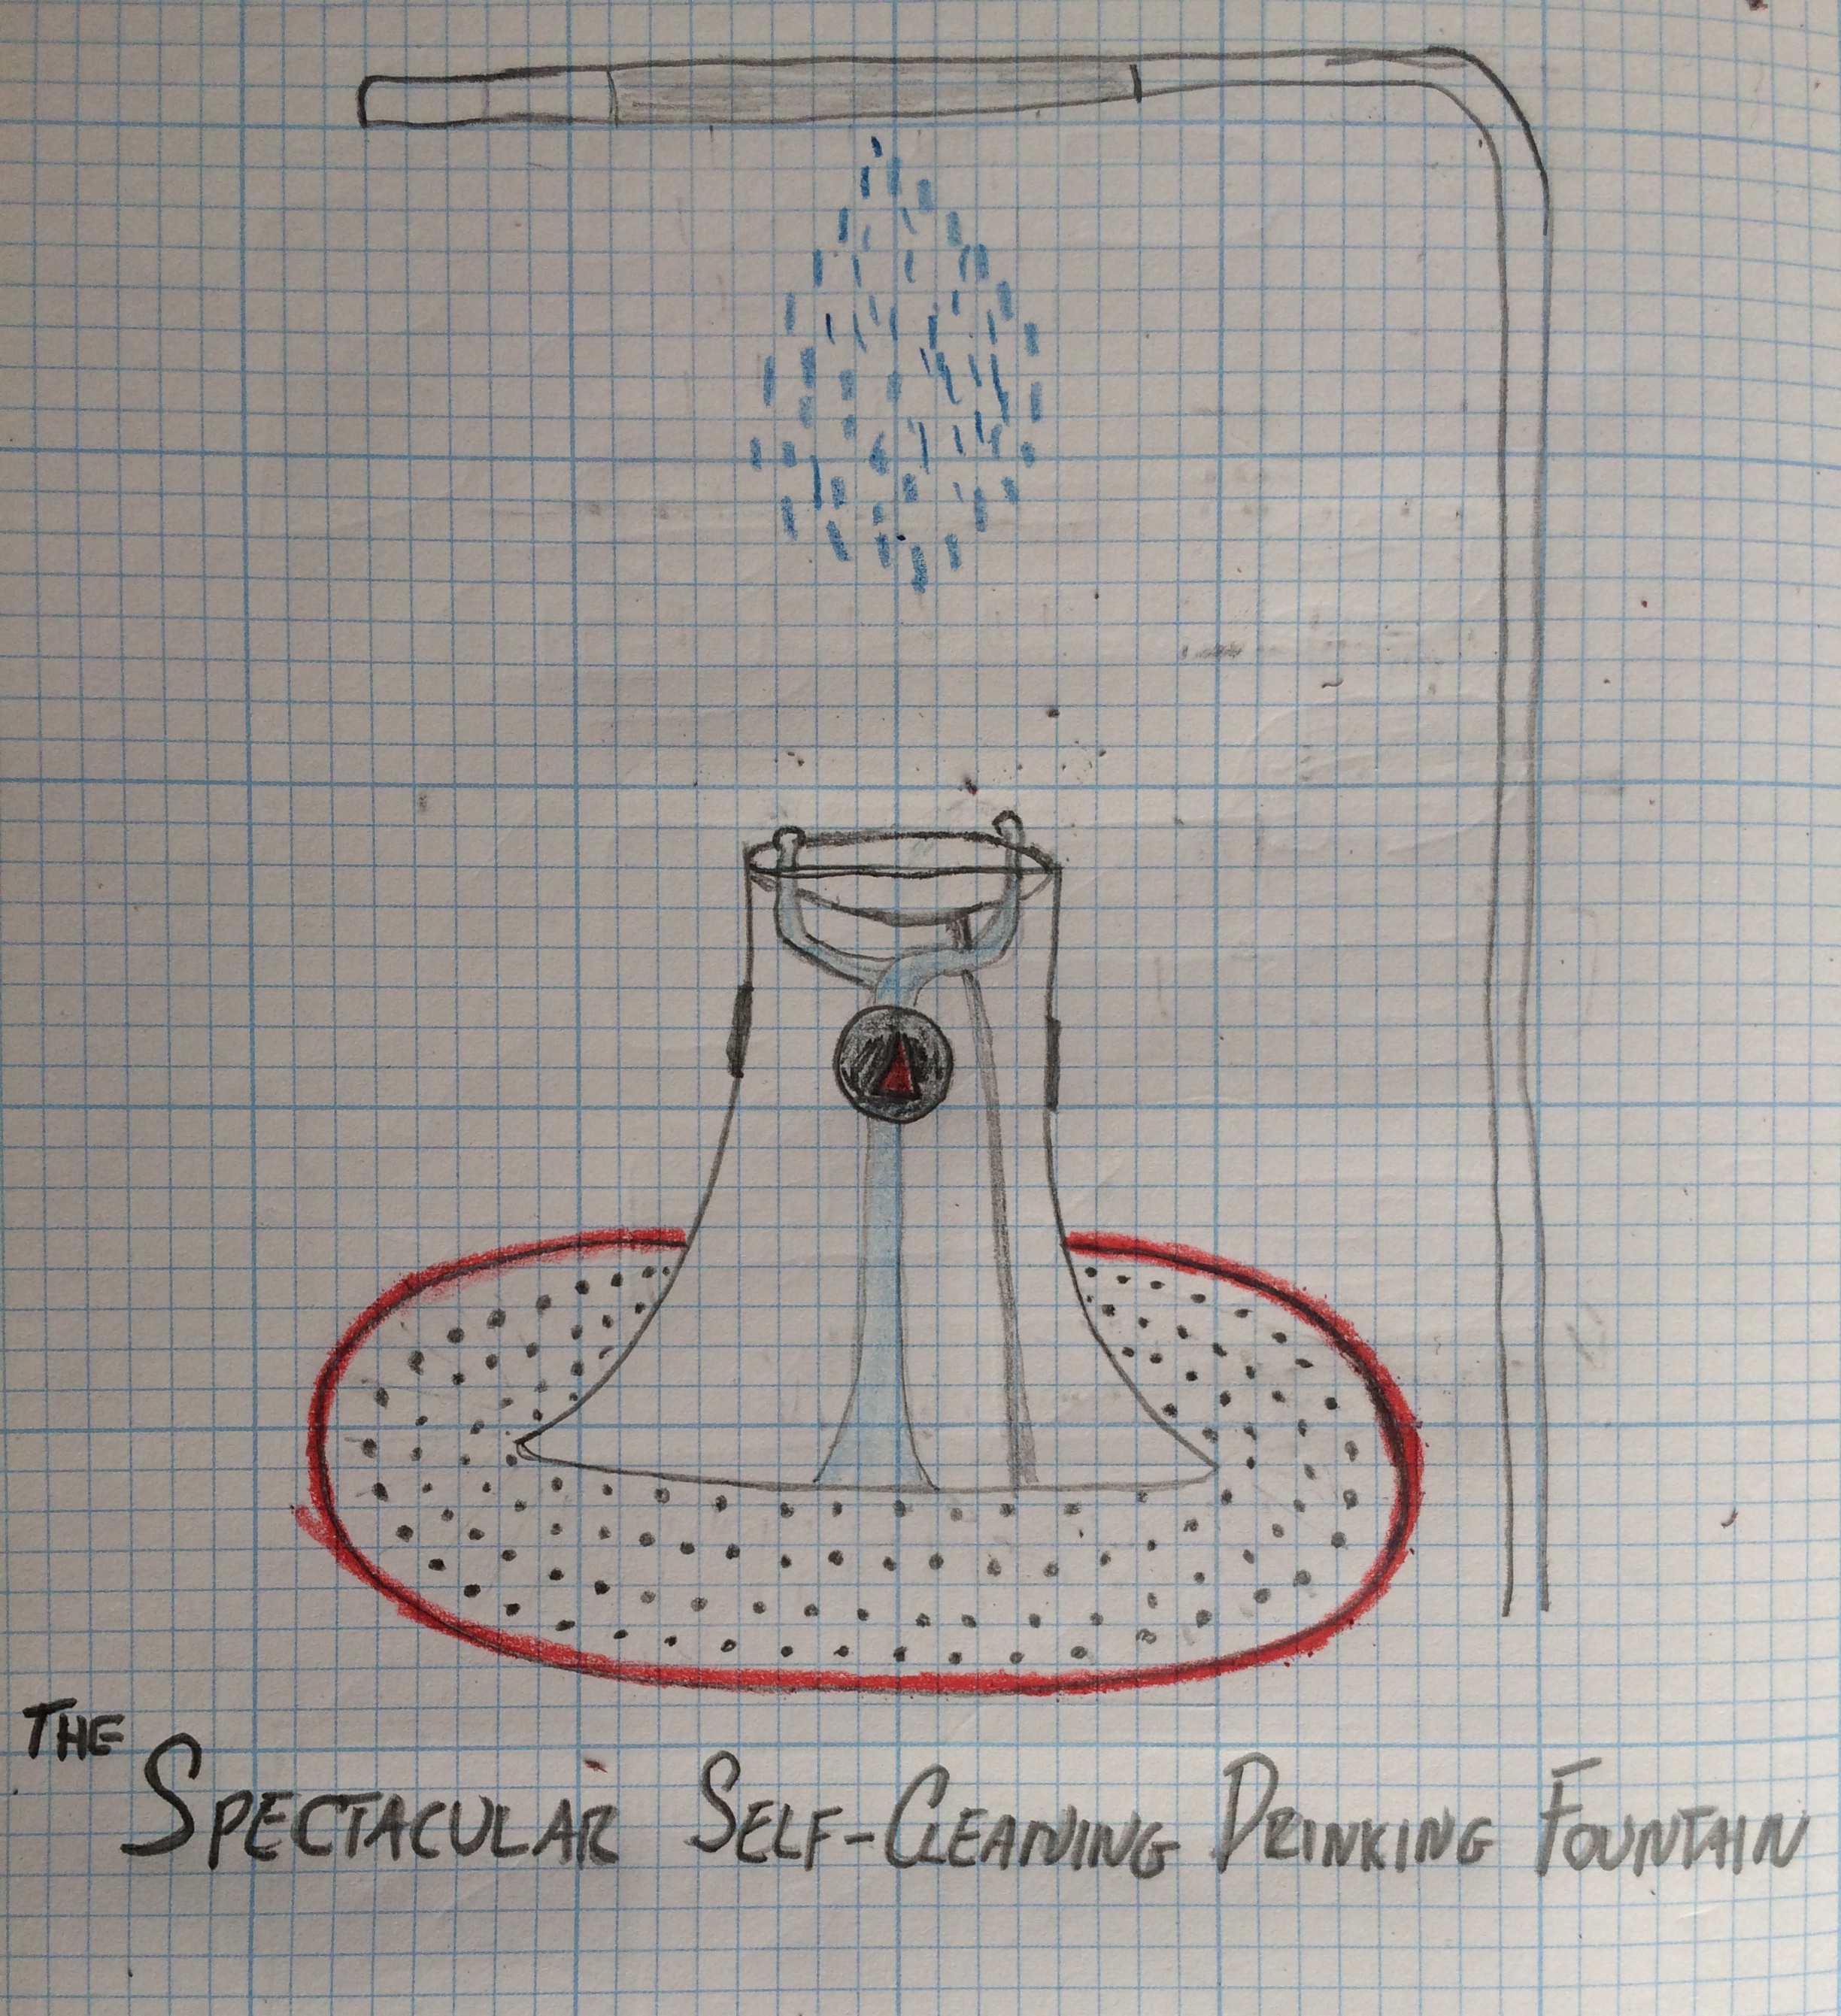 THE
SPECTACULAR SELF-CLEANING DRINKING FOUNTAIN